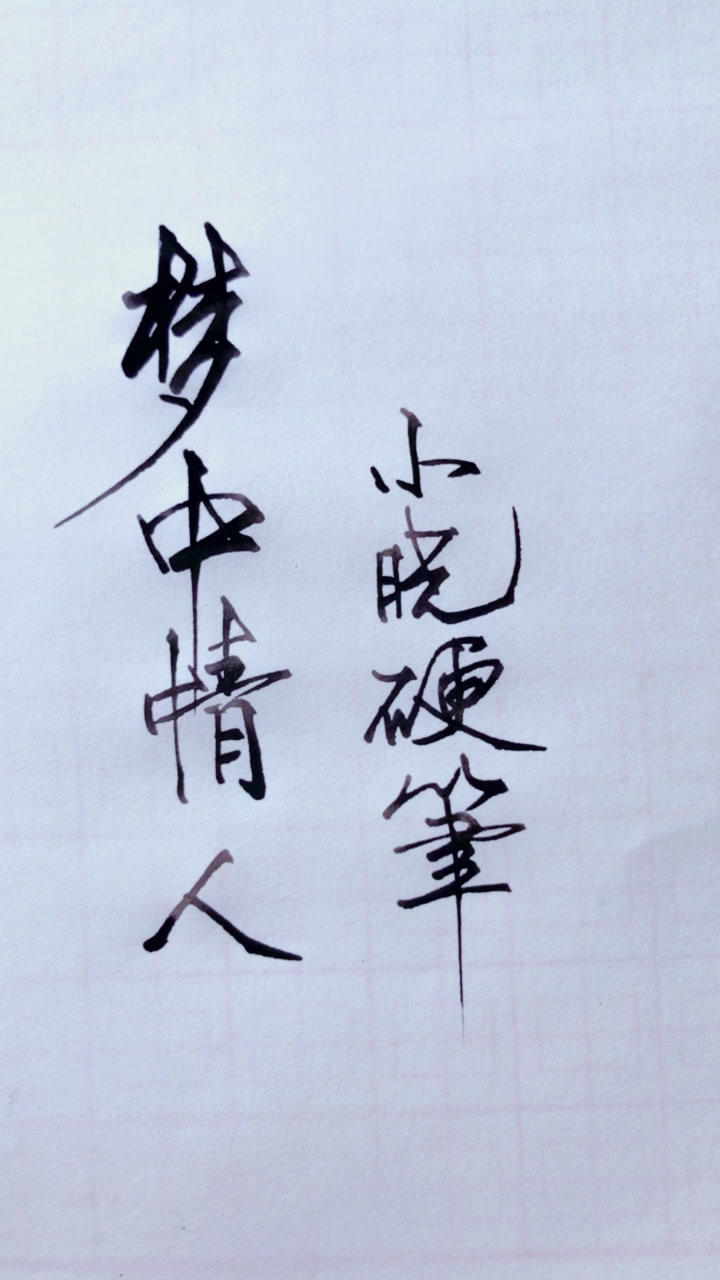 梦中情人
小晓硬筆